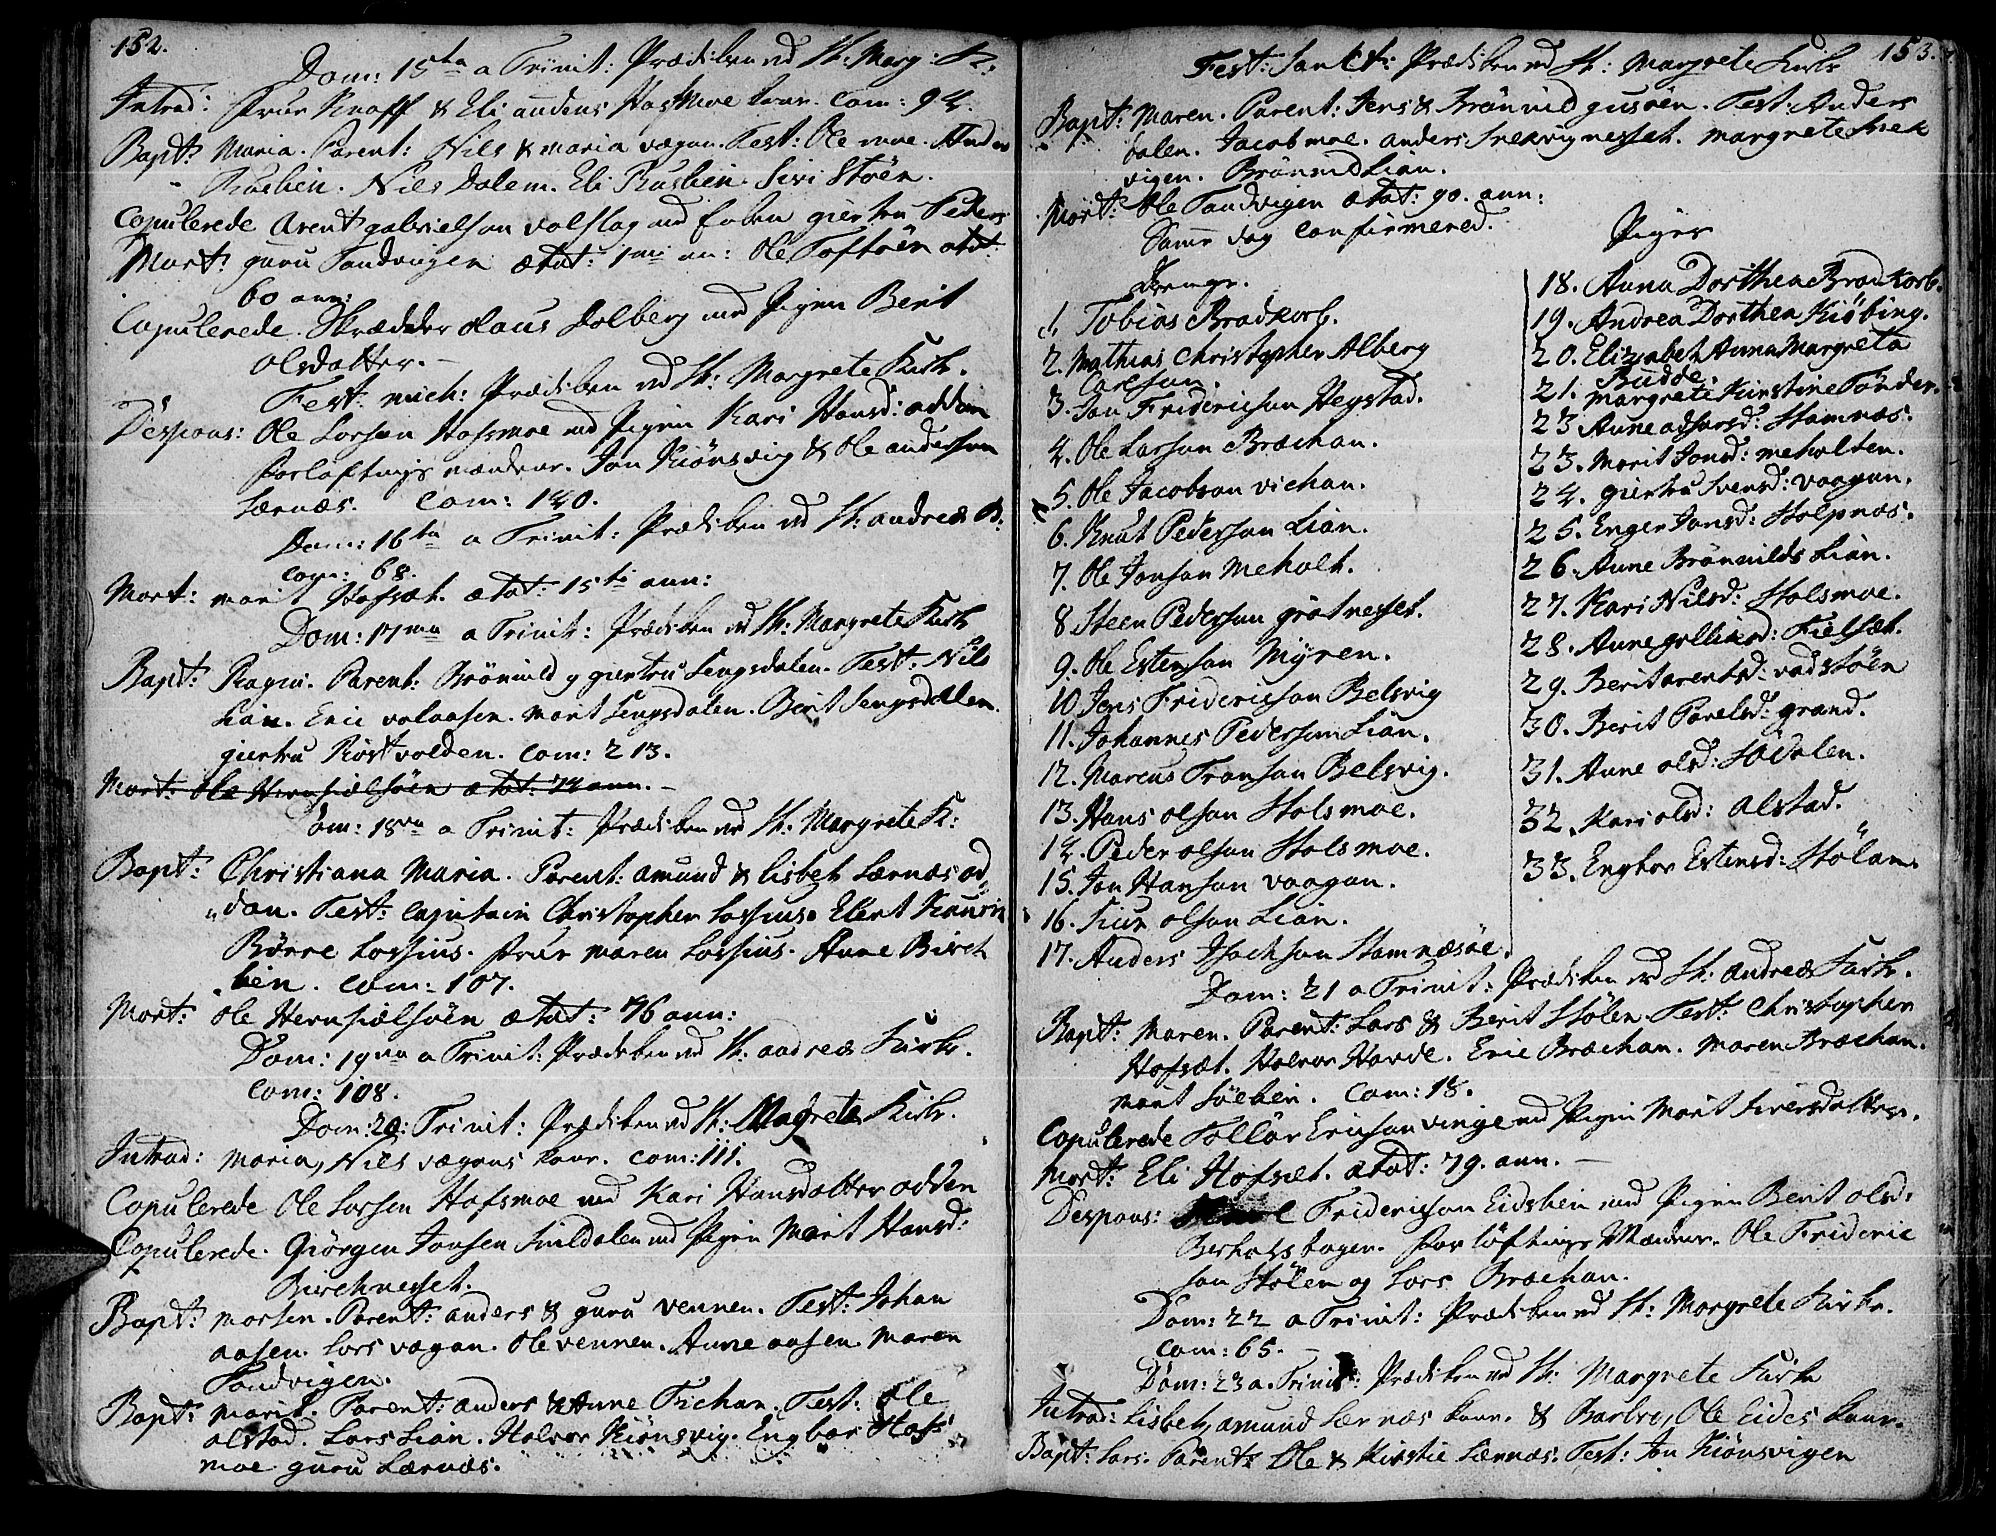 152.
Dom: 15ta a Trinit: Prædiken ved St: Marg: K:
Introd: Frue Knoff & Eli andens Hasmoe kone. Com: 94.
Bapt: Maria. Parent: Nils & Maria vægan. Test: Ole moe. Anders
Kusbein. Nils Dalem. Eli Kusbein. Siri Støen.
Copulerede Arent gabrielson valslag med Enken giertru Peders
Mort: guru Sandvigen ætat: 1mi an: Ole Toftøen ætat:
60 ann:
Copulerede. Skrædder Olaus Dolberg med Pigen Berit
Olsdatter. –
Fest: Mich: Prædiken ved St: Margrete Kirke.
Despons: Ole Larsen Hofsmoe med Pigen Kari Hansd: oddan
Forloftnings mændene. Jon Kiønsvig & Ole andersen
Lærnæs. Com: 140.
Dom: 16ta a Trinit: Prædiken ved St: andreæ K:
Com: 68.
Mort: marit Hofsæt. ætat: 15ti ann:
Dom: 17ma a Trinit: Prædiken ved St: Margrete Kirke
Bapt: Ragni. Parent: Brønild & giertru Sengsdalen. Test: Nils
Lian. Eric valaasen. Marit Sengsdalen. Berit Sengsdalen.
giertru Rostvolden. Com: 213.
Mort: Ole Hernfiælsøen ætat: 74 ann. –
Dom: 18va a Trinit: Prædiken ved St: Margrete K:
Bapt: Christiana Maria. Parent: amund & Lisbet Lærnæs od
dan. Test: Capitain Christopher Lossius. Elert Kaurin
Børre Lossius. Frue Maren Lossius. Anne Birch
bein. Com: 107.
Mort: Ole Hernfiælsøen ætat: 76 ann:
Dom: 19na a Trinit: Prædiken ved St: andreæ Kirke.
Com: 108.
Dom: 20: Trinit: Prædiken ved St: Magrete Kirke.
Introd: Maria, Nils vægans kone. Com: 111.
Copulerede Ole Larsen Hofsmoe med Kari Hansdatter odden
Copulerede. Giørgen Jonsen Snildalen med Pigen Marit Hansd:
Birchnesset.
Bapt: Morten. Parent: anders & guru vennen. Test: Johan
aasen. Lars vægan. Ole vennen. Anne aasen. Maren
Sandvigen.
Bapt: Marit. Parent: anders & Anne Fichan. Test: Ole
alstad. Lars Lian. Halvor Kiønsvig. Engbor Hofs
moe guru Lærnæs.
153.
Fest: Sanct: Prædiken ved St: Margrete Kirke
Bapt: Maren. Parent: Jens & Brønild gusøen. Test: Anders
dalen. Jacob moe. anders Snekvignesset. Margrete Snek
vigen. Brønild Lian.
Mort: Ole Sandvigen ætat: 90. ann:
Same dag Confirmered.
Drenge.
1. Tobias Bradkorb.
2. Mathias Christopher Alberg
Carlson.
3. Jon Fridericson Hegstad.
4. Ole Larson Bræchan.
5. Ole Jacobson vichan.
6. Knut Pederson Lian.
7. Ole Jonson Meholt.
8 Steen Pederson grøtnesset.
9. Ole Estenson Myren.
10 Jens Fridericson Belsvig
11. Johannes Pederson Lian.
12. Marcus Tronson Belsvig.
13. Hans olson Stolsmoe.
14. Peder olson Stolsmoe.
15. Jon Hanson vaagan.
16. Siur olson Lian.
17. Anders Isachson Stamnæsøe.
Piger
18. Anna Dorthea Bradkorb.
19. Andrea Dorthea Kiøbing.
20. Elizabet Anna Margreta
Budde.
21. Margrete Kirstine Tønder.
23 Anne Adsersd: Stamnæs.
23. Marit Jonsd: meholten.
24. giertru Svensd: vaagan.
25. Enger Jonsd: Stolpnæs.
26. Anne Brønnilds Lian.
27. Kari Nilsd: Stolsmoe.
28. Anne gullicsd: Fielsæt.
29. Berit arentsd: vadstøen
30. Berit Povelsd: grand.
31. Anne olsd: Sødalen.
32. Kari olsd: Alstad.
33. Engbor Estensd: Stølan
Dom: 21 a Trinit: Prædiken ved St: andreæ Kirke.
Bapt: Maren. Parent: Lars & Berit Stølen. Test: Christopher
Hofsæt. Halvor Havde. Eric Bræchan. Maren Bræchan.
Marit Søeben. Com: 18.
Copulerede Tollør Ericson vinge med Pigen Marit Siversdatter.
Mort: Eli Hofset. ætat: 79. ann. –
Despons: Fridericson Eidsbein med Pigen Berit olsd:
Berholshagen. Forløftnings Mændene. Ole Frideric
son Stølen og Lars Bræchan.
Dom: 22 a Trinit: Prædiken ved St: Margrete Kirke.
Com: 65. –
Dom: 23 a. Trinit: Prædiken ved St: Margrete Kirke
Introd: Lisbet, amund Lærnæs kone. & Barbro, Ole Eides kone.
Bapt: Lars. Parent: Ole & Kirstie Lærnæs. Test: Jon Kiønsvigen